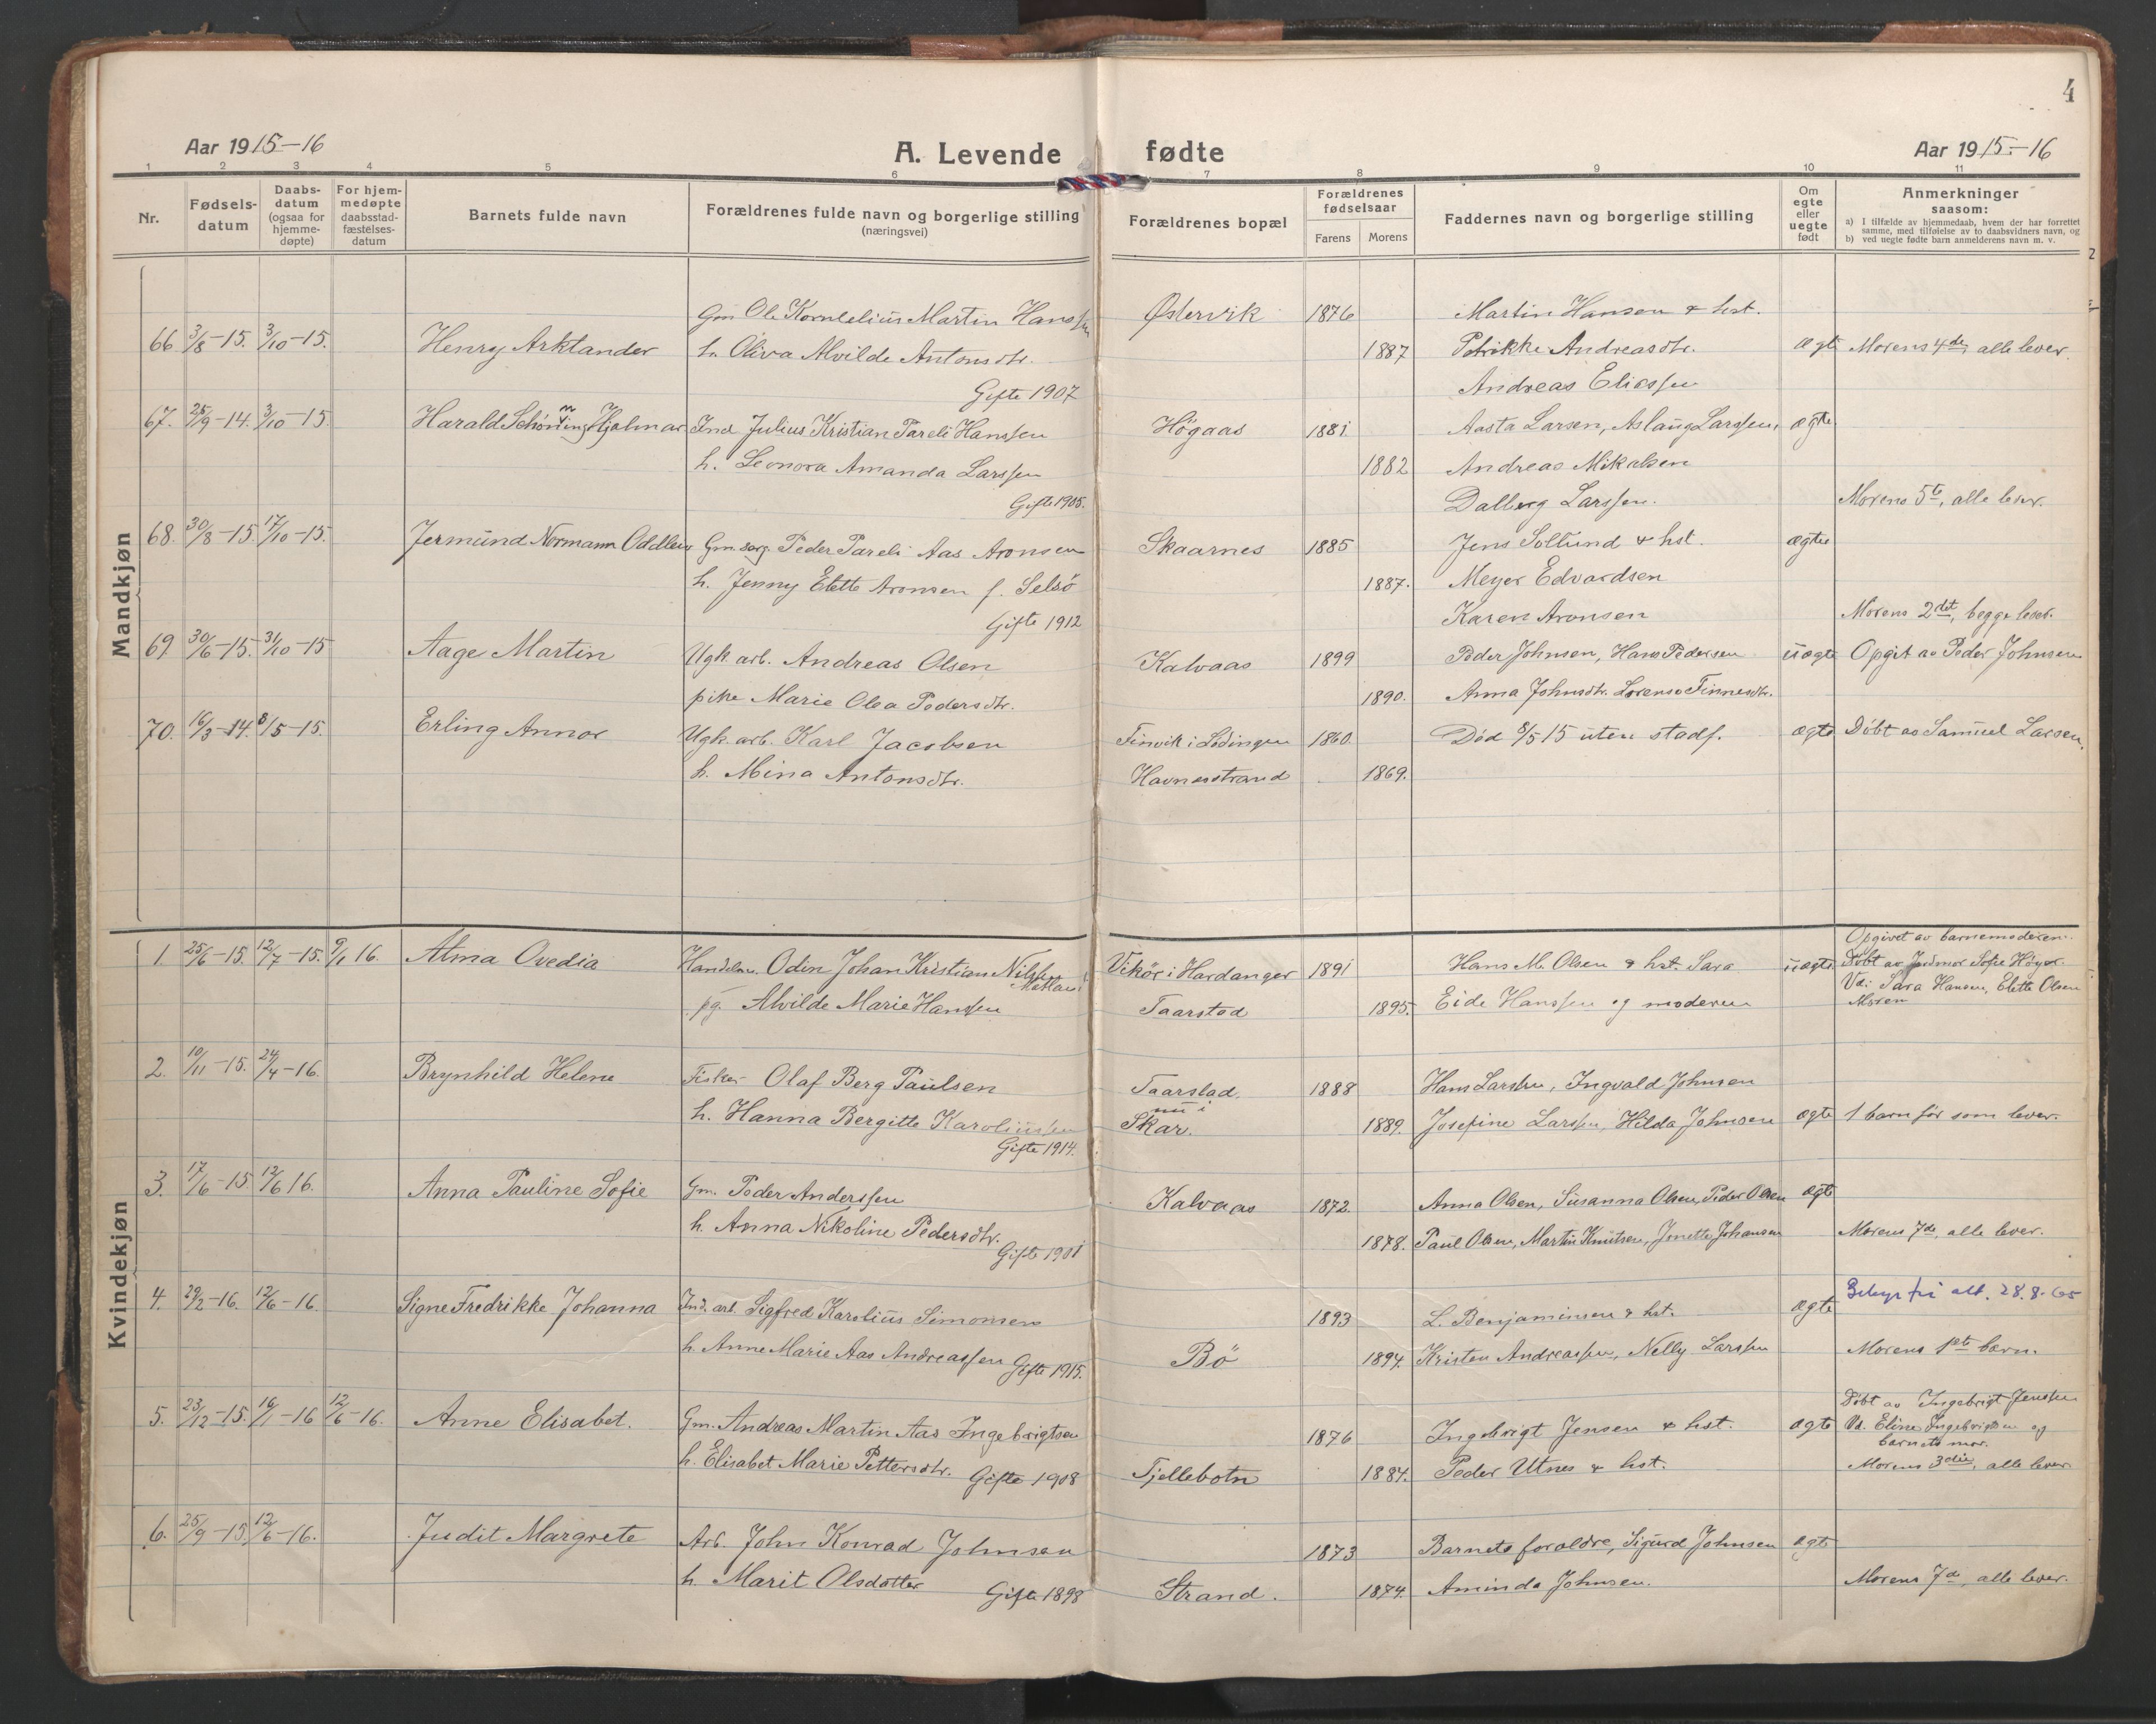 4
Aar 1915-16
A. Levende fødte
Aar 1915-16
1 2 3 4 5 6 7 8 9 10 11
Nr.
Fødsels-
datum
Daabs-
datum
(ogsaa for
hjemme-
døpte)
For hjem-
medøpte
daabsstad-
fæstelses-
datum
Barnets fulde navn
Forældrenes fulde navn og borgerlige stilling
(næringsvei)
Forældrenes bopæl
Forældrenes
fødselsaar
Farens
Morens
Faddernes navn og borgerlige stilling
Om
egte
eller
uegte
født
Anmerkninger
saasom:
a) I tilfælde av hjemmedaab, hvem der har forrettet
samme, med tilføielse av to daabsvidners navn, og
b) ved uegte fødte barn anmelderens navn m. v.
Mandkjøn
Gm Ole Kornelelius Martin Hanssen Østervik 1876 Martin Hansen & hst.
66 3/8-15. 3/10-15. Henry Arktander h. Oliva Alvilde Antonsdtr. 1887 Petrikke Andreasdtr. ægte Morens 4de, alle lever.
Gifte 1907 Andreas Eliassen
67. 25/9-14. 3/10-15. Harald Schönning Hjalmar Ind. Julius Kristian Pareli Hanssen Högaas 1881. Aasta Larsen, Aslaug Larssen, ægte
h. Leonora Amanda Larssen 1882 Andreas Mikalsen
Gifte 1905. Dalberg Larssen. Morens 5te, alle lever.
68. 30/8-15. 17/10-15. Jermund Normann Oddleiv Gm. søg. Peder Pareli Aas Aronsen Skaarnes 1885 Jens Sollund & hst. ægte
h. Jenny Elette Aronsen f. Selsö 1887. Meyer Edvardsen
Gifte 1912 Karen Aronsen Morens 2det, begge lever.
69 30/6-15. 31/10-15 Aage Martin Ugk. arb. Andreas Olsen Kalvaas 1899 Peder Johnsen, Hans Pedersen uægte Opgit av Peder Johnsen
pike Marie Olea Pedersdtr. 1890. Anna Johnsdtr. Lorense Finnesdtr.
70. 16/3-14. 8/5-15. Erling Annor Ugk. arb. Karl Jacobsen Finvik i Lödingen 1860. Död 8/5 15 uten stadf. ægte Döbt av Samuel Larsen.
h. Mina Antonsdtr. Havnesstrand 1869.
Kvindekjøn
Opgivet av barnemoderen.
1. 25/6-15. 12/7-15. 9/1 16. Alma Ovedia Handelsm. Odin Johan Kristian Nilssen Vikör i Hardanger 1891 Hans M. Olsen & hst. Sara uægte Döbt av Jordmor Sofie Höyer
pg. Alvilde Marie Hanssen Taarstad 1895. Eide Hanssen og moderen Vd: Sara Hansen, Elette Olsen
Moren
2. 10/11-15. 24/4-16. Brynhild Helene Fisker Olaf Berg Paulsen Taarstad. 1888 Hans Larssen, Ingvald Johnsen
nu i
h. Hanna Bergitte Karoliussen Skar. 1889. Josefine Larssen, Hilda Johnsen ægte 1 barn för som lever.
Gifte 1914.
3. 17/6-15 12/6 16. Anna Pauline Sofie Gm. Peder Anderssen Kalvaas 1872. Anna Olsen, Susanna Olsen, Peder Olsen ægte
h. Anna Nikoline Pedersdtr. 1878. Paul Olsen, Martin Knutsen, Jenette Johansen Morens 7de, alle lever.
Gifte 1901
4. 29/2-16. 12/6-16. Signe Fredrikke Johanna Ind. arb. Sigfred Karolius Simonsen 1893 L. Benjaminsen & hst. ægte 28.8.65
h. Anne Marie Aas Andreassen Gifte 1915. Bö 1894. Kristen Andreassen, Nelly Larssen Morens 1ste barn.
Döbt av Ingebrigt Jenssen
5. 23/12-15. 16/1-16 12/6-16. Anne Elisabet. Gm. Andreas Martin Aas Ingebrigtsen 1876 Ingebrigt Jensen & hst. ægte Vd. Eline Ingebrigtsen og
barnets mor.
h. Elisabet Marie Pettersdtr. Gifte 1908 Fjellebotn 1884. Peder Utnes & hst. Morens 3die, alle lever
6. 25/9-15 12/6-16. Judit Margrete Arb. John Konrad Johnsen 1873 Barnets forældre, Sigurd Johnsen ægte
h. Marit Olsdatter Gifte 1898 Strand. 1874. Aminda Johnsen. Morens 7de, alle lever.